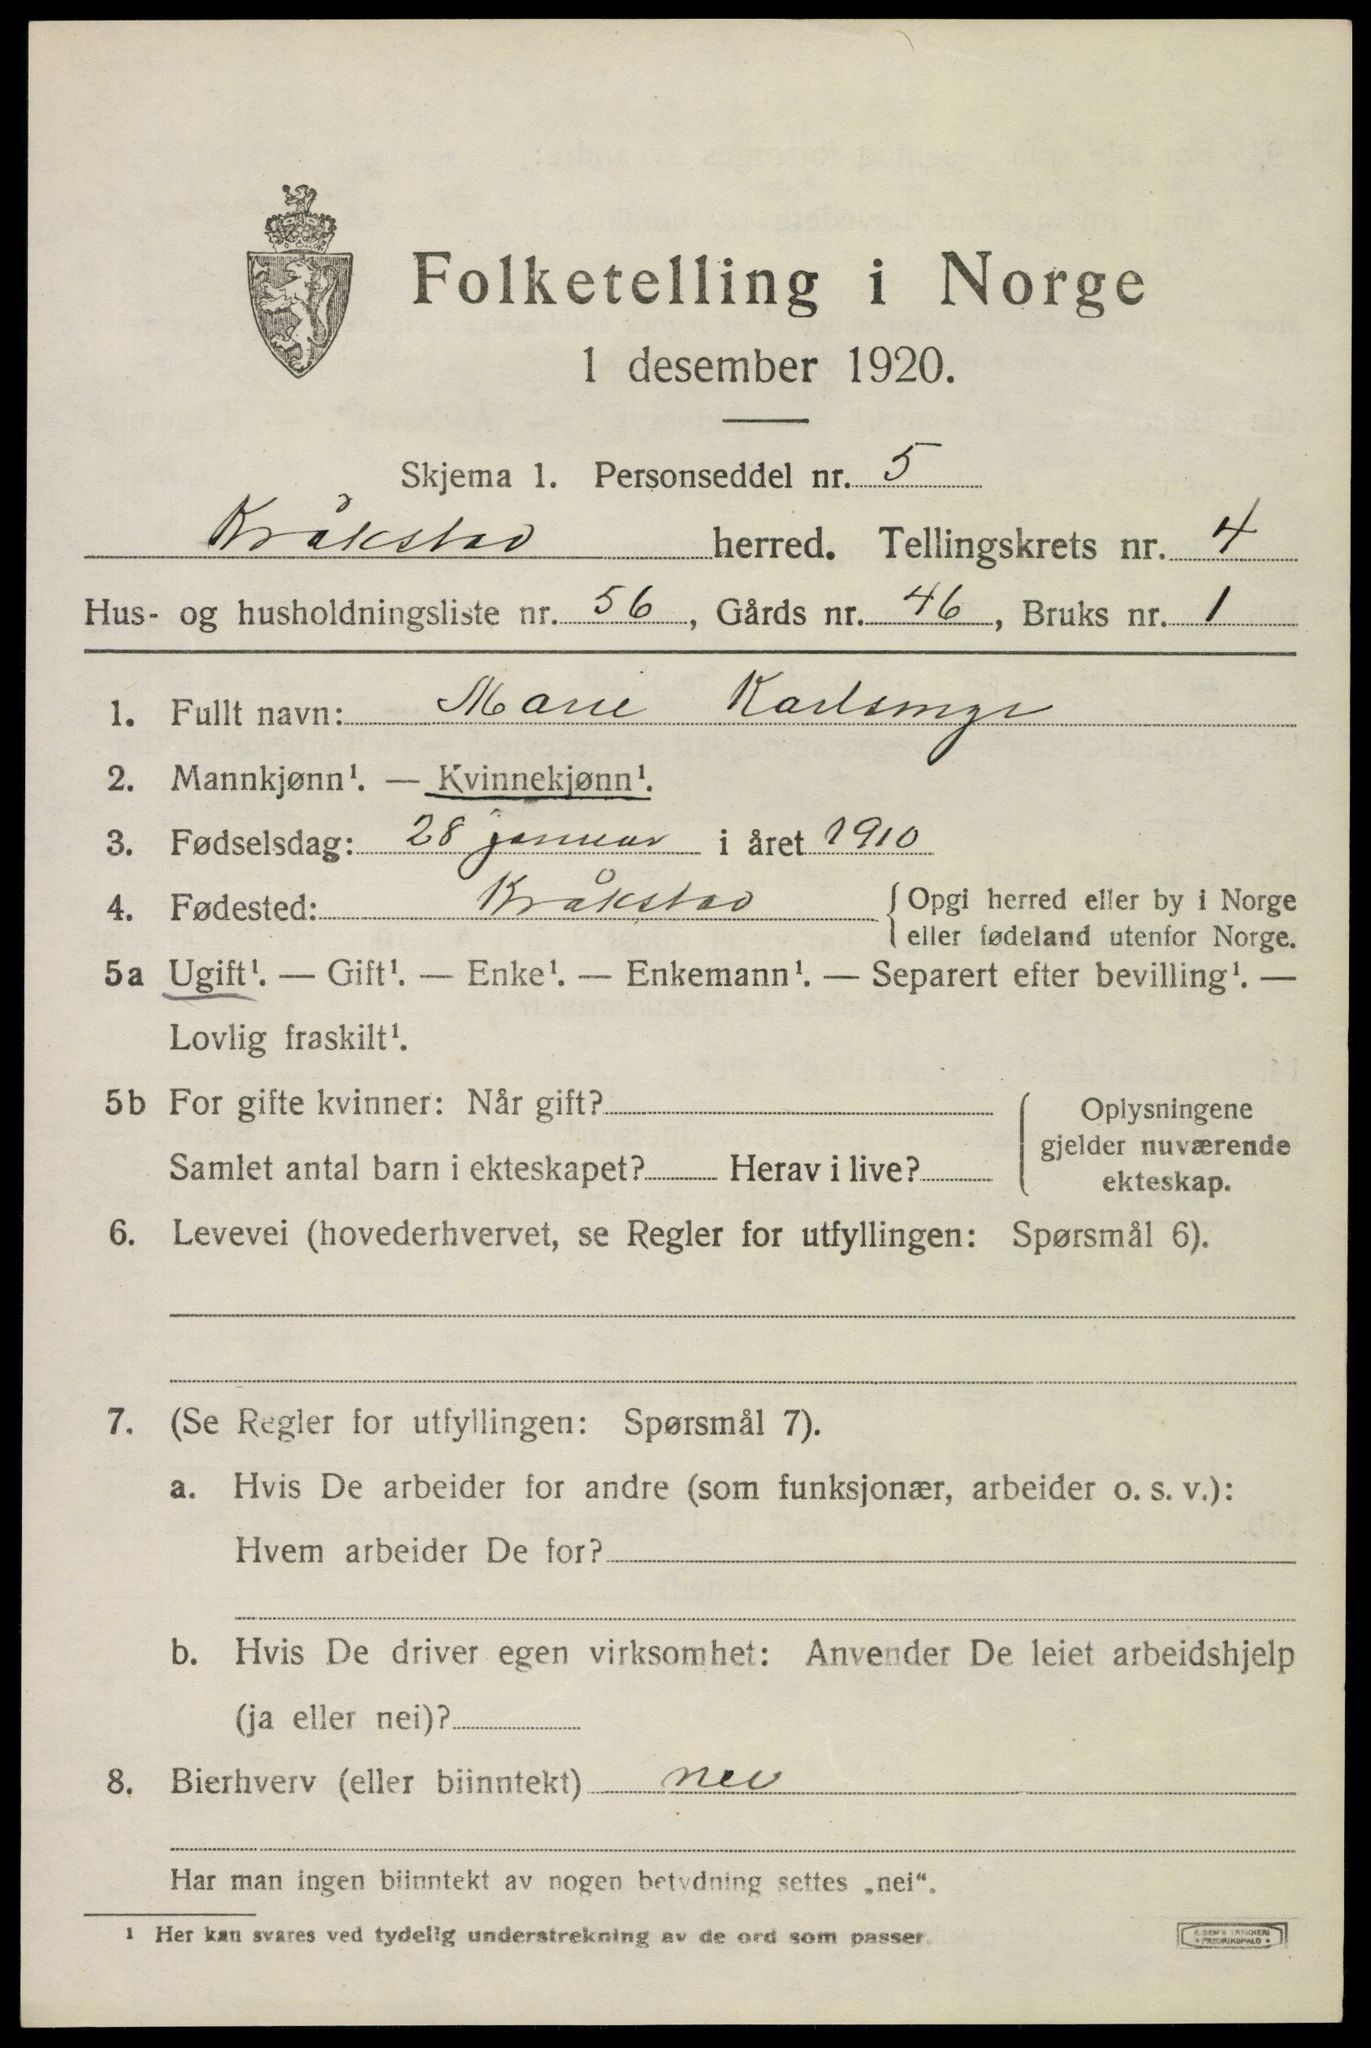 Folketelling i Norge
1 desember 1920.
Skjema 1. Personseddel nr. 5
Kråkstad herred. Tellingskrets nr. 4
Hus- og husholdningsliste nr. 56, Gårds nr. 46, Bruks nr. 1
1. Fullt navn: Marie
2. Mannkjønn¹. — Kvinnekjønn¹.
3. Fødselsdag: 28 januar i året 1910
4. Fødested: Kråkstad { Opgi herred eller by i Norge
eller fødeland utenfor Norge.
5a Ugift¹. — Gift¹. — Enke¹. — Enkemann¹. — Separert efter bevilling¹. —
Lovlig fraskilt¹.
5b For gifte kvinner: Når gift?
Samlet antal barn i ekteskapet? Herav i live?
Oplysningene
gjelder nuværende
ekteskap.
6. Levevei (hovederhvervet, se Regler for utfyllingen: Spørsmål 6).
7. (Se Regler for utfyllingen: Spørsmål 7).
a. Hvis De arbeider for andre (som funksjonær, arbeider o. s. v.):
Hvem arbeider De for?
b. Hvis De driver egen virksomhet: Anvender De leiet arbeidshjelp
(ja eller nei)?
8. Bierhverv (eller biinntekt) nei
Har man ingen biinntekt av nogen betydning settes „nei“.
¹ Her kan svares ved tydelig understrekning av de ord som passer.